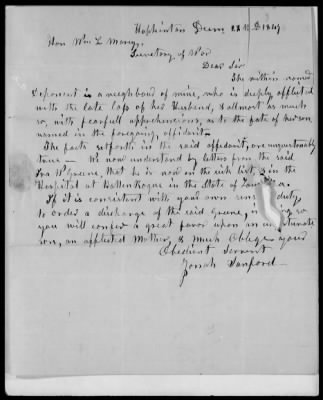 Hopkinton Decem 28th 1847
Hon Wm L Marcy,
Secretary of War
Dear Sir
The within named
Deponent is a neighbour of mine, who is deeply afflicted
with the late loss of her Husband, & allmost as much
so, with fearfull apprehensions, as to the fate of her son
named in the foregoing affidavit.
The facts setforth in the said affidavit, are unquestionably
true — We now understand by letters from the said
Ira W Greene, that he is now on the sick list, in the
Hospital at in the State of
If it is consistent with your own duty
to order a discharge of the said Greene, so
you will confer a great favor upon an unfortunate
son, an afflicted Mother, & Much Oblige your
Obedient Servent
Jonah Sanford